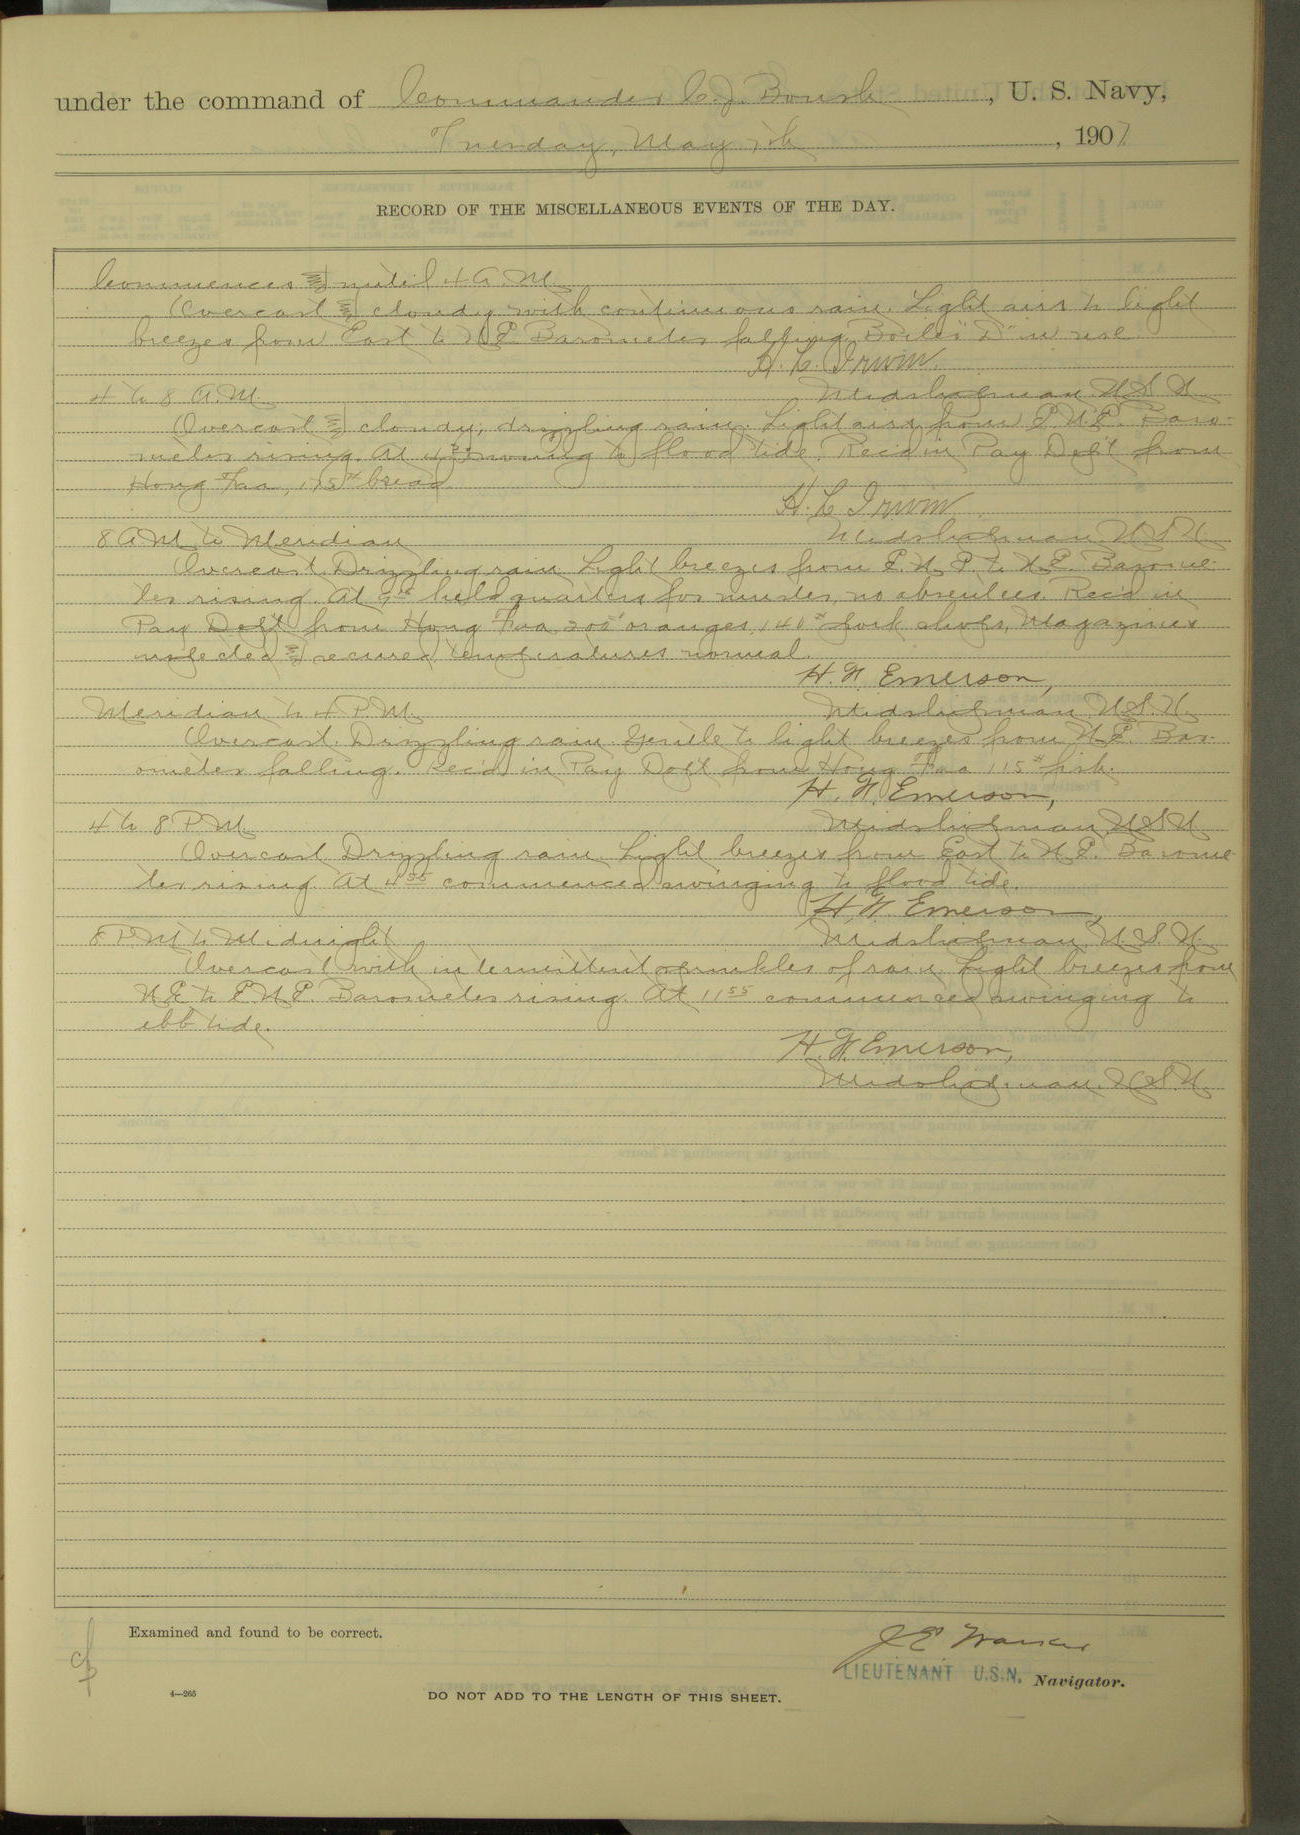 under the command of Commander C. J. Boush, U. S. Navy,
Tuesday, May 7th, 1907
RECORD OF THE MISCELLANEOUS EVENTS OF THE DAY.
Commences and until 4 A.M.
Overcast and cloudy with continuous rain. Light airs to light
breezes from East to N.E. Barometer falling. Boiler "D" in use.
H. C. Irwin.
Midshipman U.S.N.
4 to 8 A.M.
Overcast and cloudy, drizzling rain. Light airs from E.N.E. Baro-
meter rising. At swung to flood tide. Rec'd in Pay Dep't from
Hong Faa, 175# bread
H. C. Irwin
Midshipman U.S.N.
8 A.M. to Meridian
Overcast. Drizzling rain. Light breezes from E.N.E. to N.E. Barome-
ter rising. At held quarters for muster, no absentees. Rec'd in
Pay Dep't from Hong Faa 205# oranges, 140# pork chops, Magazines
inspected and secured, temperatures normal.
H. W. Emerson,
Midshipman U.S.N.
Meridian to 4 P.M.
Overcast. Drizzling rain. Gentle to light breezes from N.E. Bar-
ometer falling. Rec'd in Pay Dep't from Hong Faa 115# fish.
H. W. Emerson,
Midshipman, U.S.N.
4 to 8 P.M.
Overcast. Drizzling rain. Light breezes from East to N.E. Barome-
ter rising. At 4 55 commenced swinging to flood tide.
H. W. Emerson,
Midshipman U.S.N.
8 P.M. to Midnight
Overcast with intermittent sprinkles of rain. Light breezes from
N.E. to E.N.E. Barometer rising. At 11 55 commenced swinging to
ebb tide.
H. W. Emerson,
Midshipman U.S.N.
Examined and found to be correct.
J E
LIEUTENANT U.S.N. Navigator.
4—265
DO NOT ADD TO THE LENGTH OF THIS SHEET.